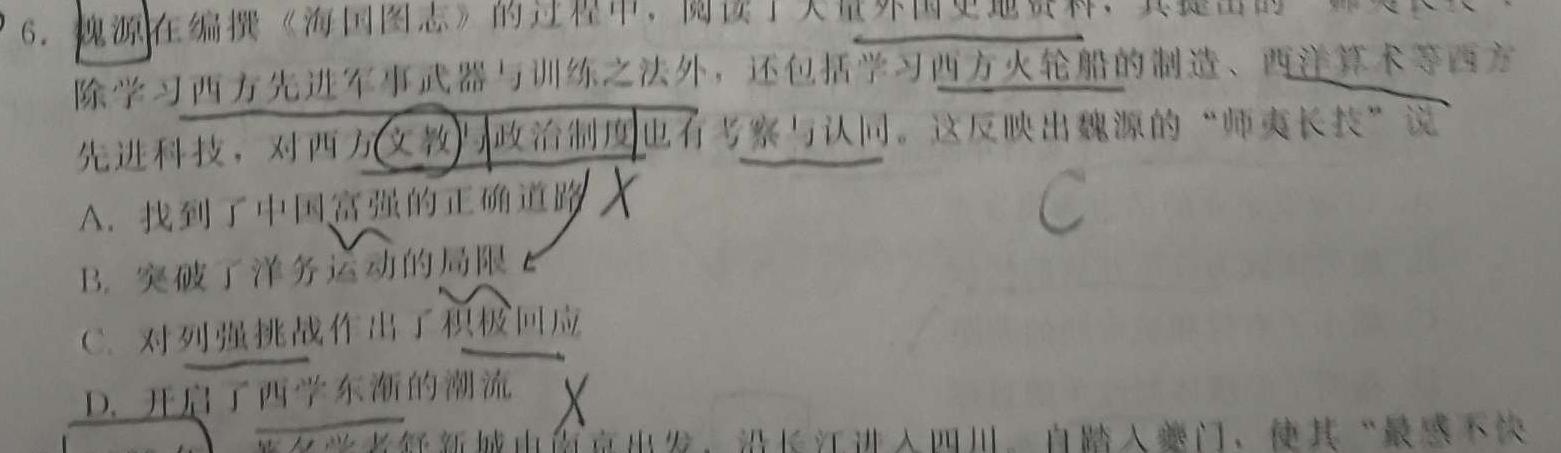 6. 魏源在编撰《海国图志》的过程中，阅读了大量外国史地资料，其提出的“师夷长技”
除学习西方先进军事武器与训练之法外，还包括学习西方火轮船的制造、西洋算术等西方
先进科技，对西方文教与政治制度也有考察与认同。这反映出魏源的“师夷长技”说
A. 找到了中国富强的正确道路 X
C
B. 突破了洋务运动的局限
C. 对列强挑战作出了积极回应
D. 开启了西学东渐的潮流 X
著名学者舒新城由南京出发，沿长江进入四川。自踏入夔门，使其“最感不快